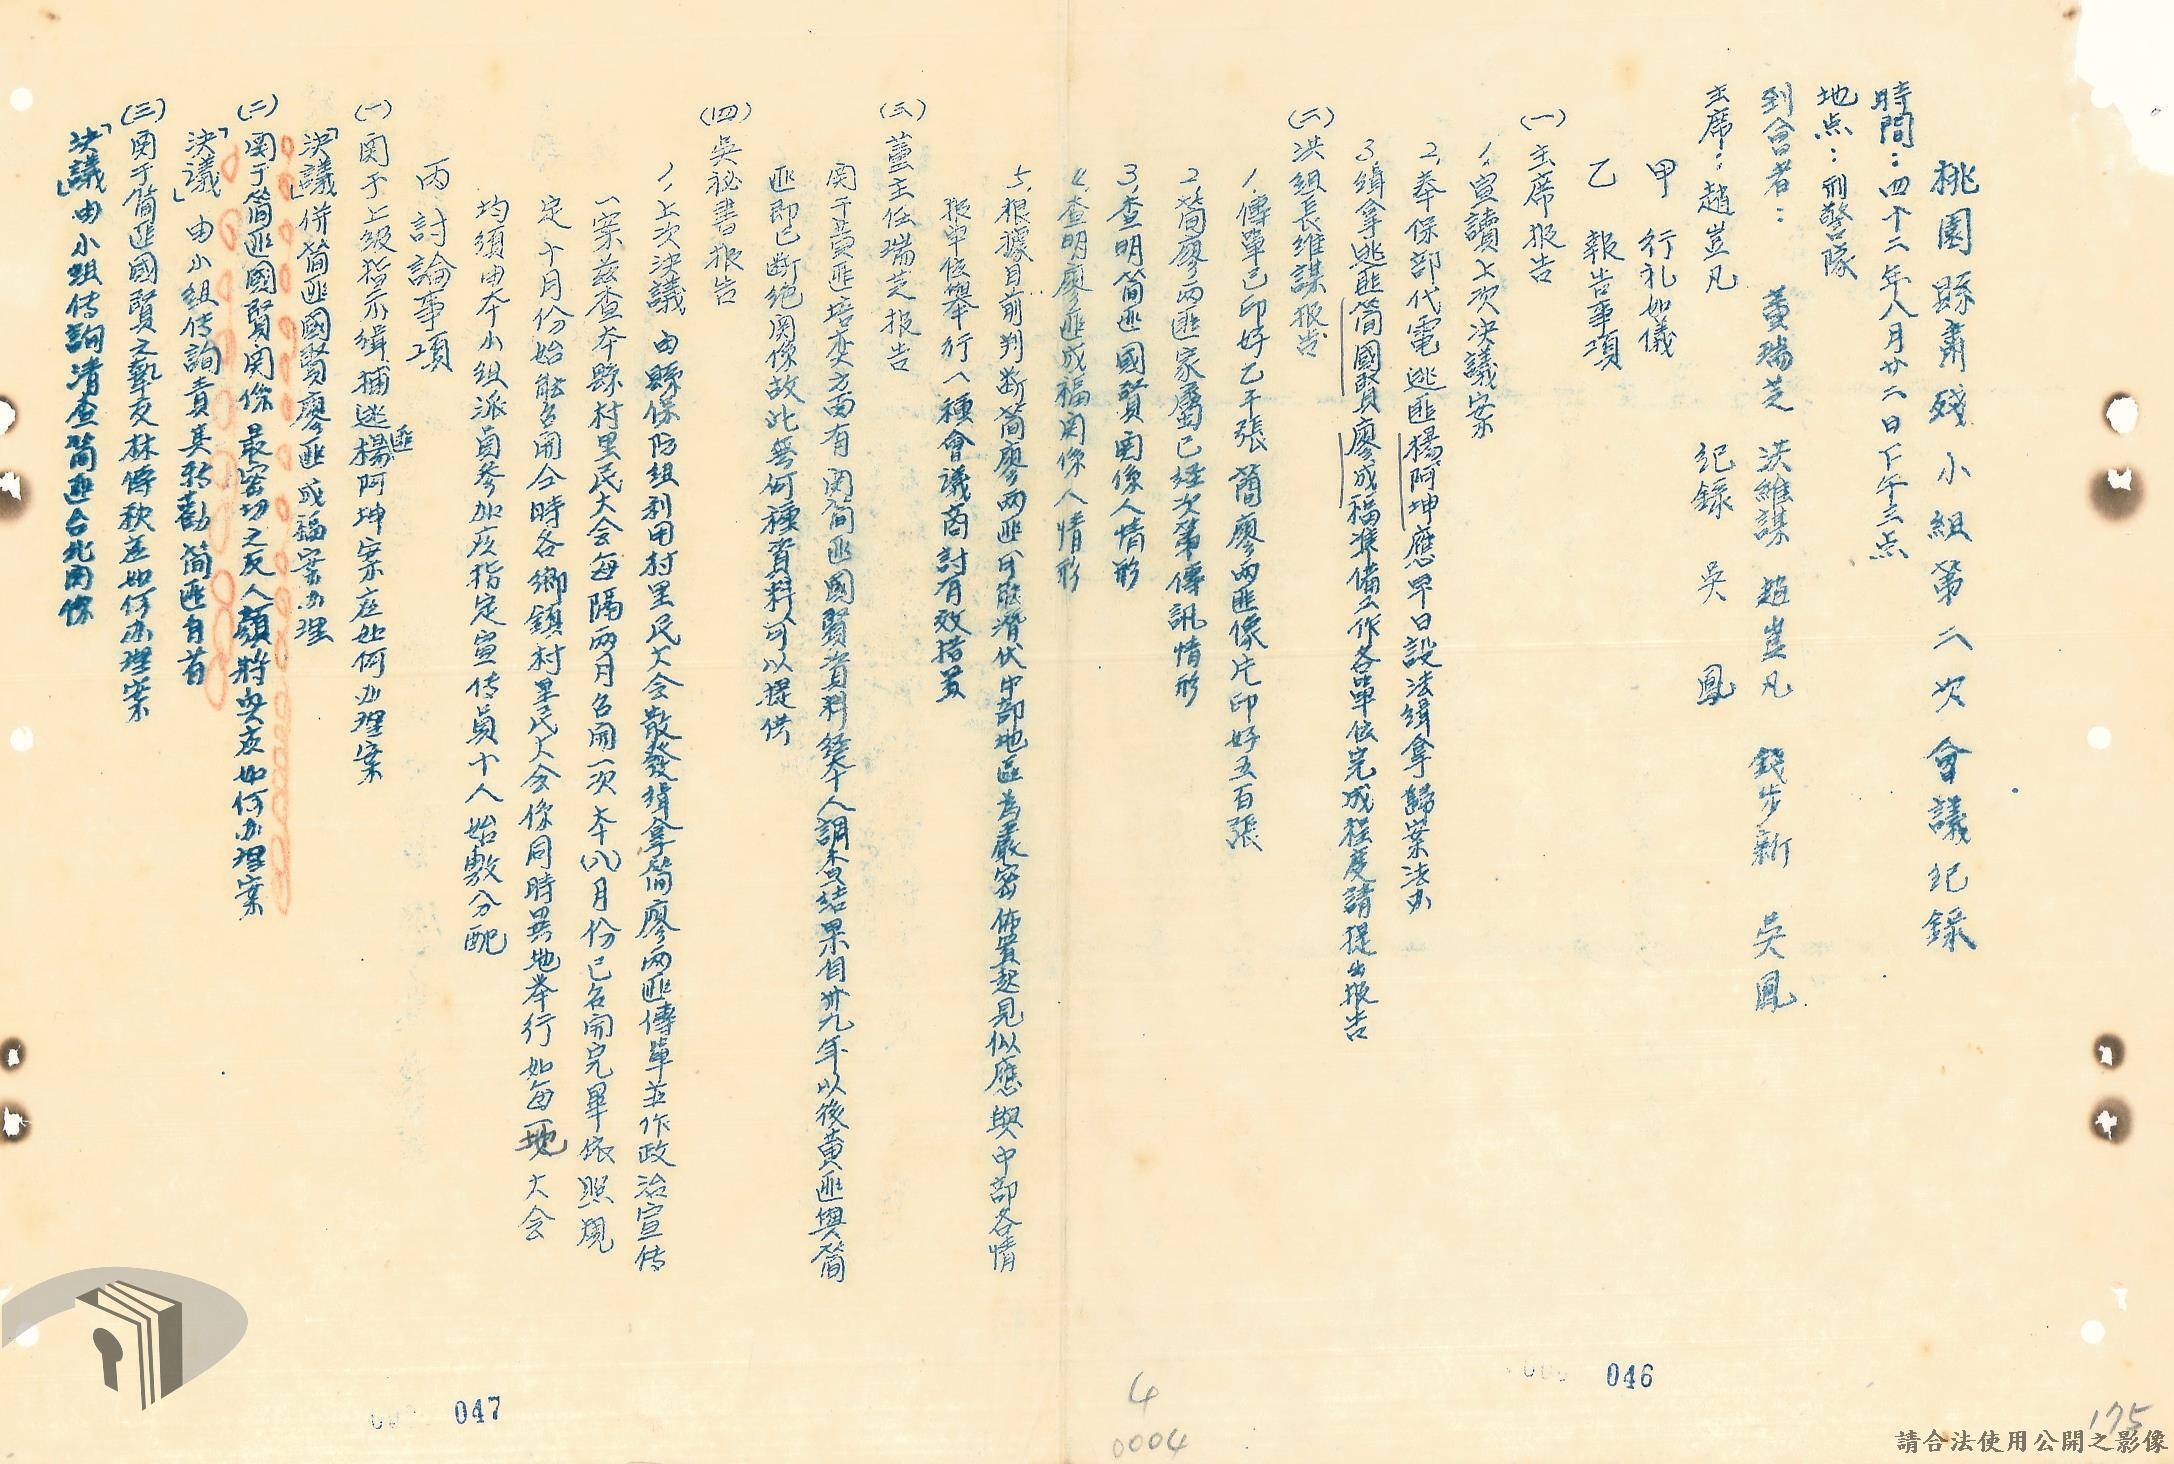 桃園縣肅殘小組第二次會議紀錄
時間：四十二年八月廿二日下午三点
地点：刑警隊
到會者：董瑞芝 洪維謀 趙豈凡 錢步新 吳鳳
主席：趙豈凡 紀錄 吳鳳
甲 行礼如儀
乙 報告事項
(一)主席报告
1.宣讀上次決議案
2.奉保部代電逃匪楊阿坤應早日設法緝拿歸案法办
3.緝拿逃匪簡國賢廖成福準備工作各單位完成程度請提出报告
(二)洪組長維謀报告
1.傳單已印好乙千張簡廖兩匪像片印好五百張
2.簡廖兩匪家屬已經次第傳訊情形
3.查明簡匪國賢関係人情形
4.查明廖匪成福関係人情形
5.根據目前判斷簡廖兩匪可能潛伏中部地區為嚴密佈置起見似應與中部各情
报单位舉行一種會議商討有效措置
(三)董主任瑞芝报告
関于黄匪培奕方面有関簡匪國賢資料經本人調查結果自卅九年以後黄匪與簡
匪即已斷絕関係故此無何種資料可以提供
(四)吳祕書报告
1.上次決議由縣保防組利用村里民大会散發緝拿簡廖兩匪傳單並作政治宣传
一案茲查本縣村里民大会每隔兩月召開一次本(八)月份已召開完畢依照規
定十月份始能召開仝時各鄉鎮村里民大会係同時異地举行如每一地大会
均須由本小组派員參加及指定宣传員十人始敷分配
丙 討論事項
(一)関于上級指示緝捕逃匪楊阿坤案应如何办理案
「決議」併簡匪國賢廖匪成福案办理
(二)関于簡匪國賢関係最密切之友人顏將興应如何办理案
「決議」由小組传詢責其轉勸簡匪自首
(三)関于簡匪國賢之摯友林傳秋应如何办理案
「決議」由小組传詢清查簡匪台北関係
046
047
4
0004
175
請合法使用公開之影像